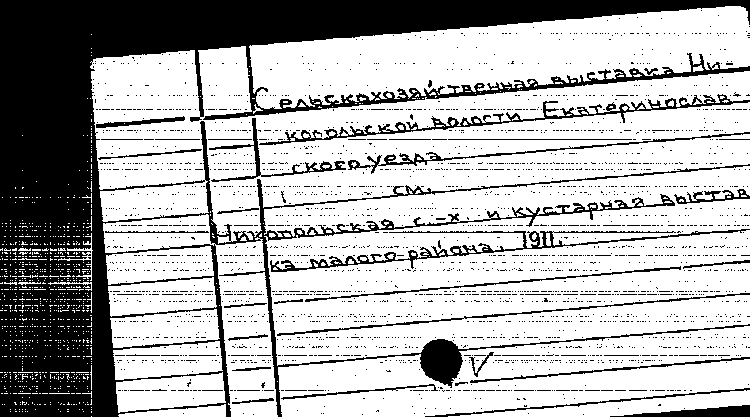 Сельскохозяйственная выставка Ни-
копольской волости Екатеринослав-
ского уезда
см.
Никопольская с.-х. и кустарная выстав
ка малого района. 1911.
V